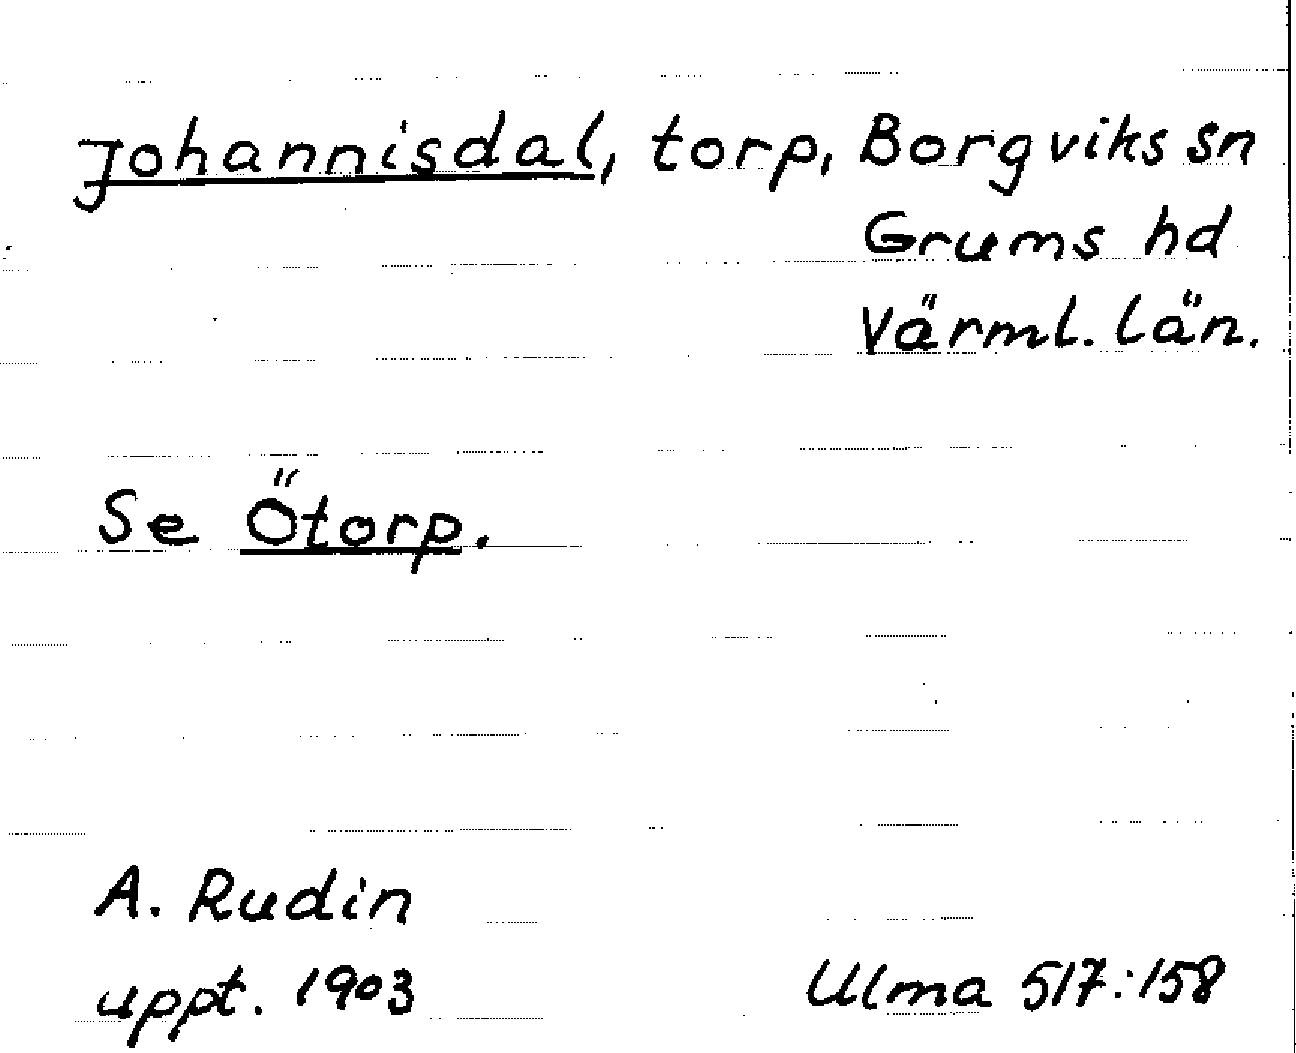 Johannisdal, torp, Borgviks sn
Grums hd
Värml. län.
Se Ötorp.
A. Rudin
uppt. 1903
Ulma 517:158